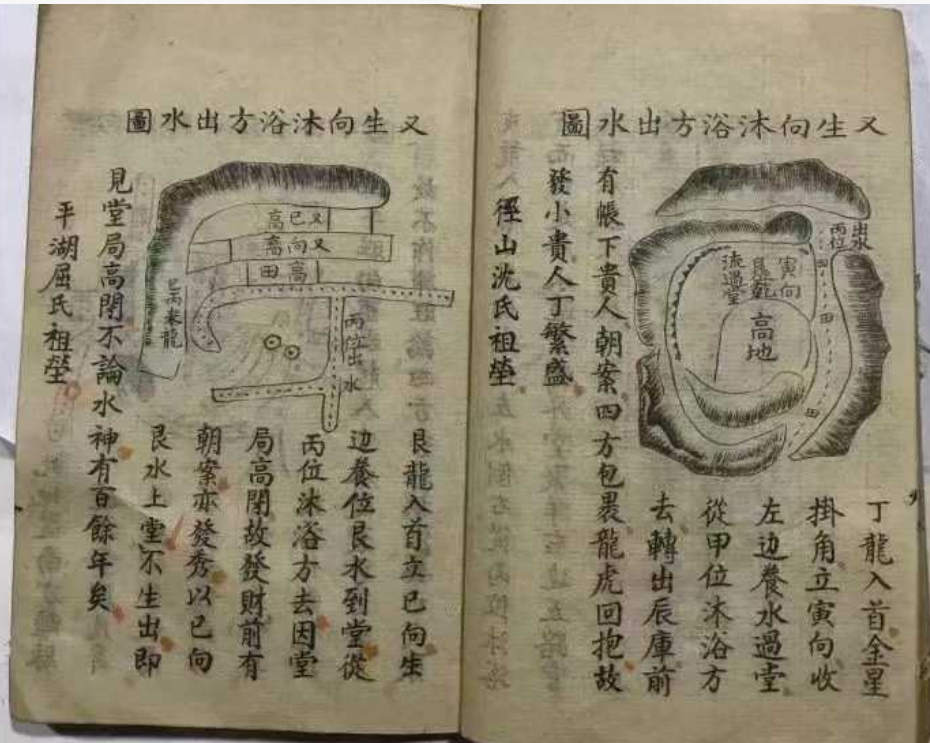 又生向沐浴方出水圖
出水
丙位
寅向
過堂
高地
田
田
田
丁龍入首金星
掛角立寅向收
左边養水過堂
從甲位沐浴方
去轉出辰庫前
有帳下貴人朝案四方包裹龍虎回抱故
發小貴人丁繁盛
徑山沈氏祖塋
又生向沐浴方出水圖
又巳高
又向高
高田
丙位出水
丙來龍
艮龍入首立巳向生
边養位艮水到堂從
丙位沐浴方去因堂
局高閉故發財前有
朝案亦發秀以巳向
艮水上堂不生出即
見堂局高閉不論水神有百餘年矣
平湖屈氏祖塋